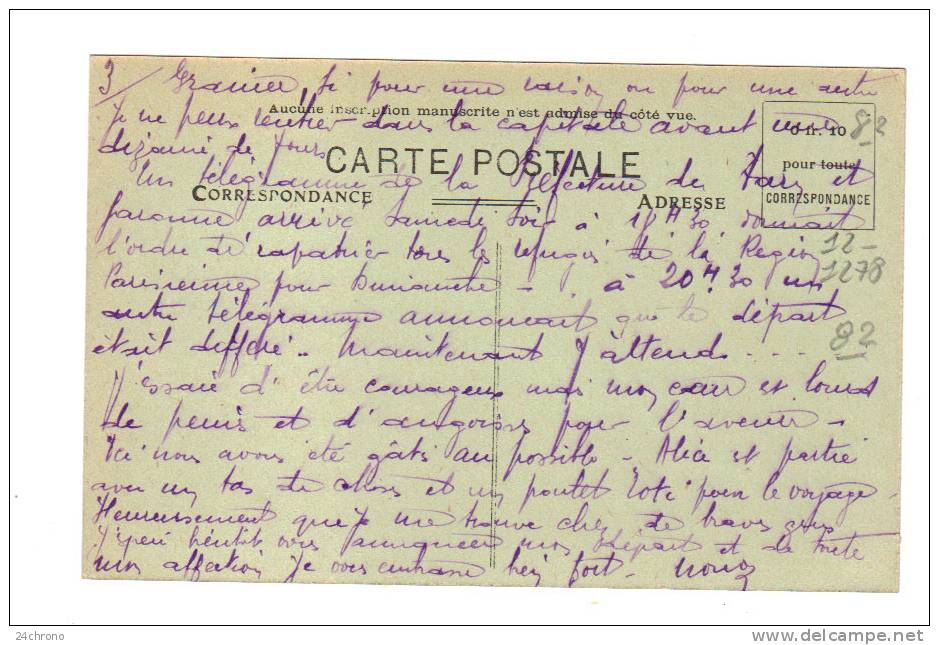 3/ Granier, si pour une raison ou pour une autre
Aucune inscription manuscrite n'est admise du côté vue.
je ne peux rentrer dans la capitale avant une
0 fr. 10
82
dizaine de jours
CARTE POSTALE
pour toute
Un télégramme de la Préfecture de Tarn et
CORRESPONDANCE
ADRESSE
CORRESPONDANCE
garonne arrivé samedi soir à 18H30 donnait
l'ordre de rapatrier tous les refugiés de la Region
12-
1278
Parisienne pour Dimanche - . à 20H30 un
autre télégramme annoncait que le départ
82
était différé.. Maintenant J'attends ...
J'essaie d'être courageux mais mon cœur est lourd
de peines et d'angoisses pour l'avenir -
Ici nous avons été gâtés au possible - Alice est partie
avec un tas de choses et un poulet roti pour le voyage -
Heureusement que je me trouve chez de braves gens
J'espère bientôt vous annoncer mon départ et de toute
mon affection Je vous embrasse bien fort -
24chrono
www.delcampe.net